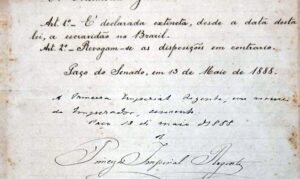 Art. 1º - É declarada extincta, desde a data desta
lei, a escravidão no Brasil.
Art. 2º - Revogam-se as disposições em contrario.
Paço do Senado, em 13 de Maio de 1888.
A Princesa Imperial Regente, em nome
do Imperador, consente.
Paço 13 de maio de 1888
Princeza Imperial Regente